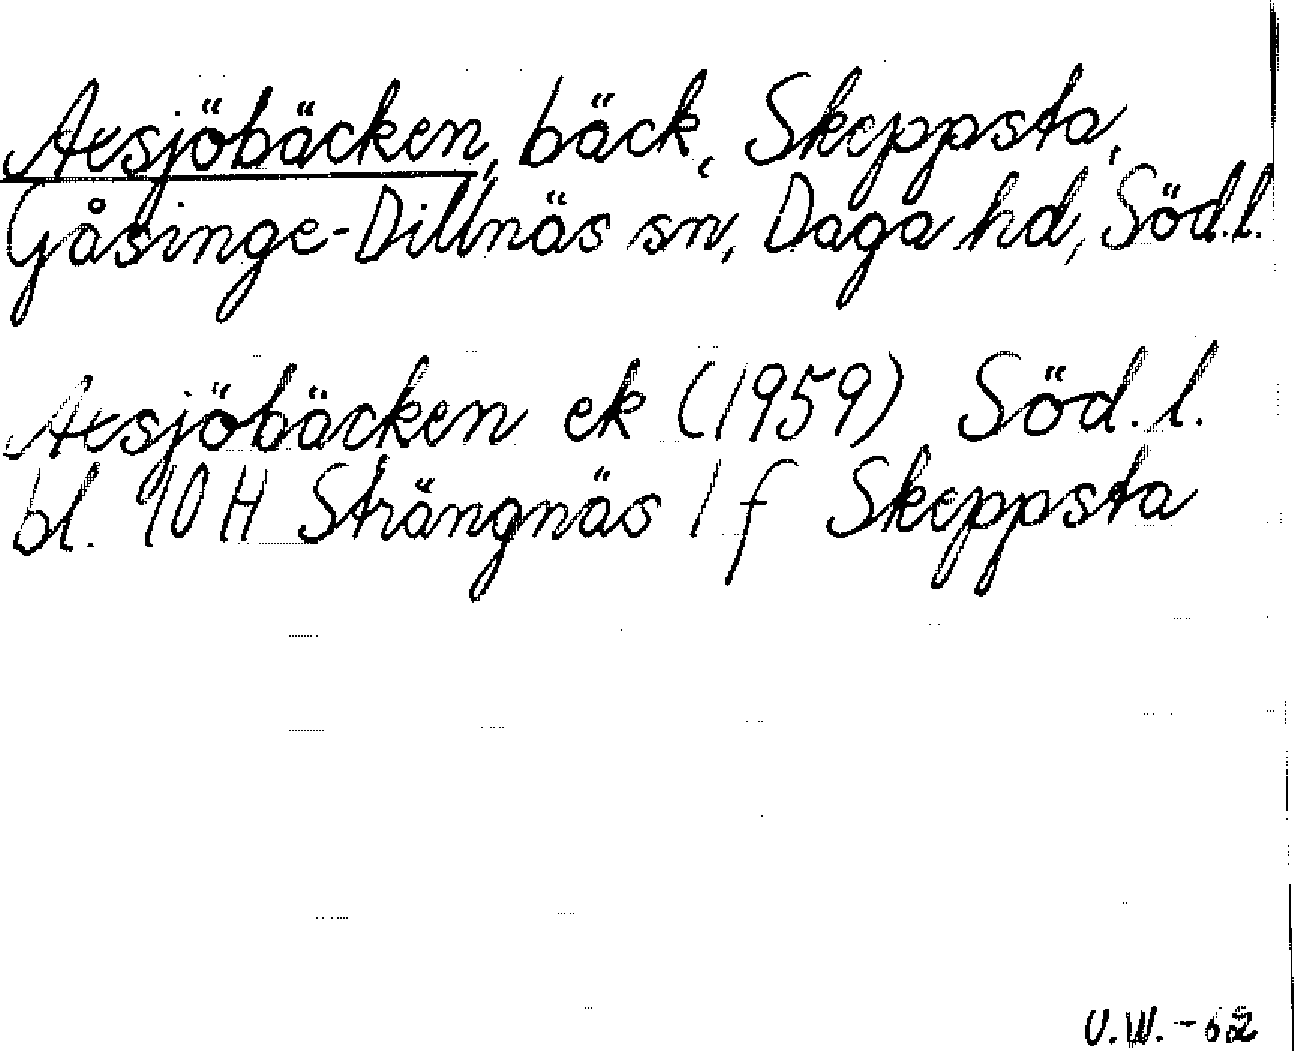 Aesjöbäcken, bäck, Skeppsta,
Gåsinge-Dillnäs sn, Daga hd, Söd.l.
Aesjöbäcken ek (1959) Söd.l.
bl. 10H Strängnäs 1 f Skeppsta
U.W. - 62